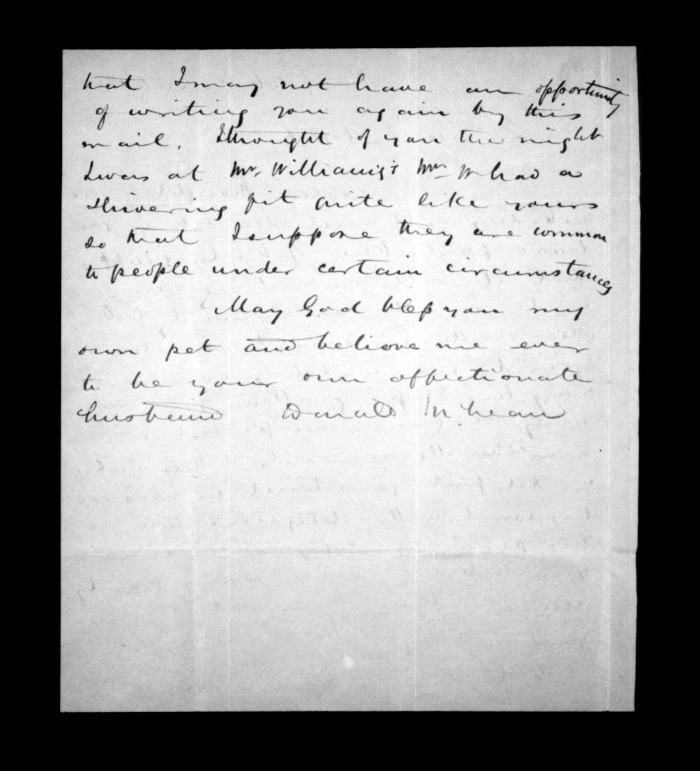 that I may not have an opportunity
of writing you again by this
mail. I thought of you the night
I was at Mr. Williams's Mrs W had a
shivering fit quite like yours
so that I suppose they are common
to people under certain circumstances
May God bless you my
own pet and believe me ever
to be your own affectionate
husband Donald McLean